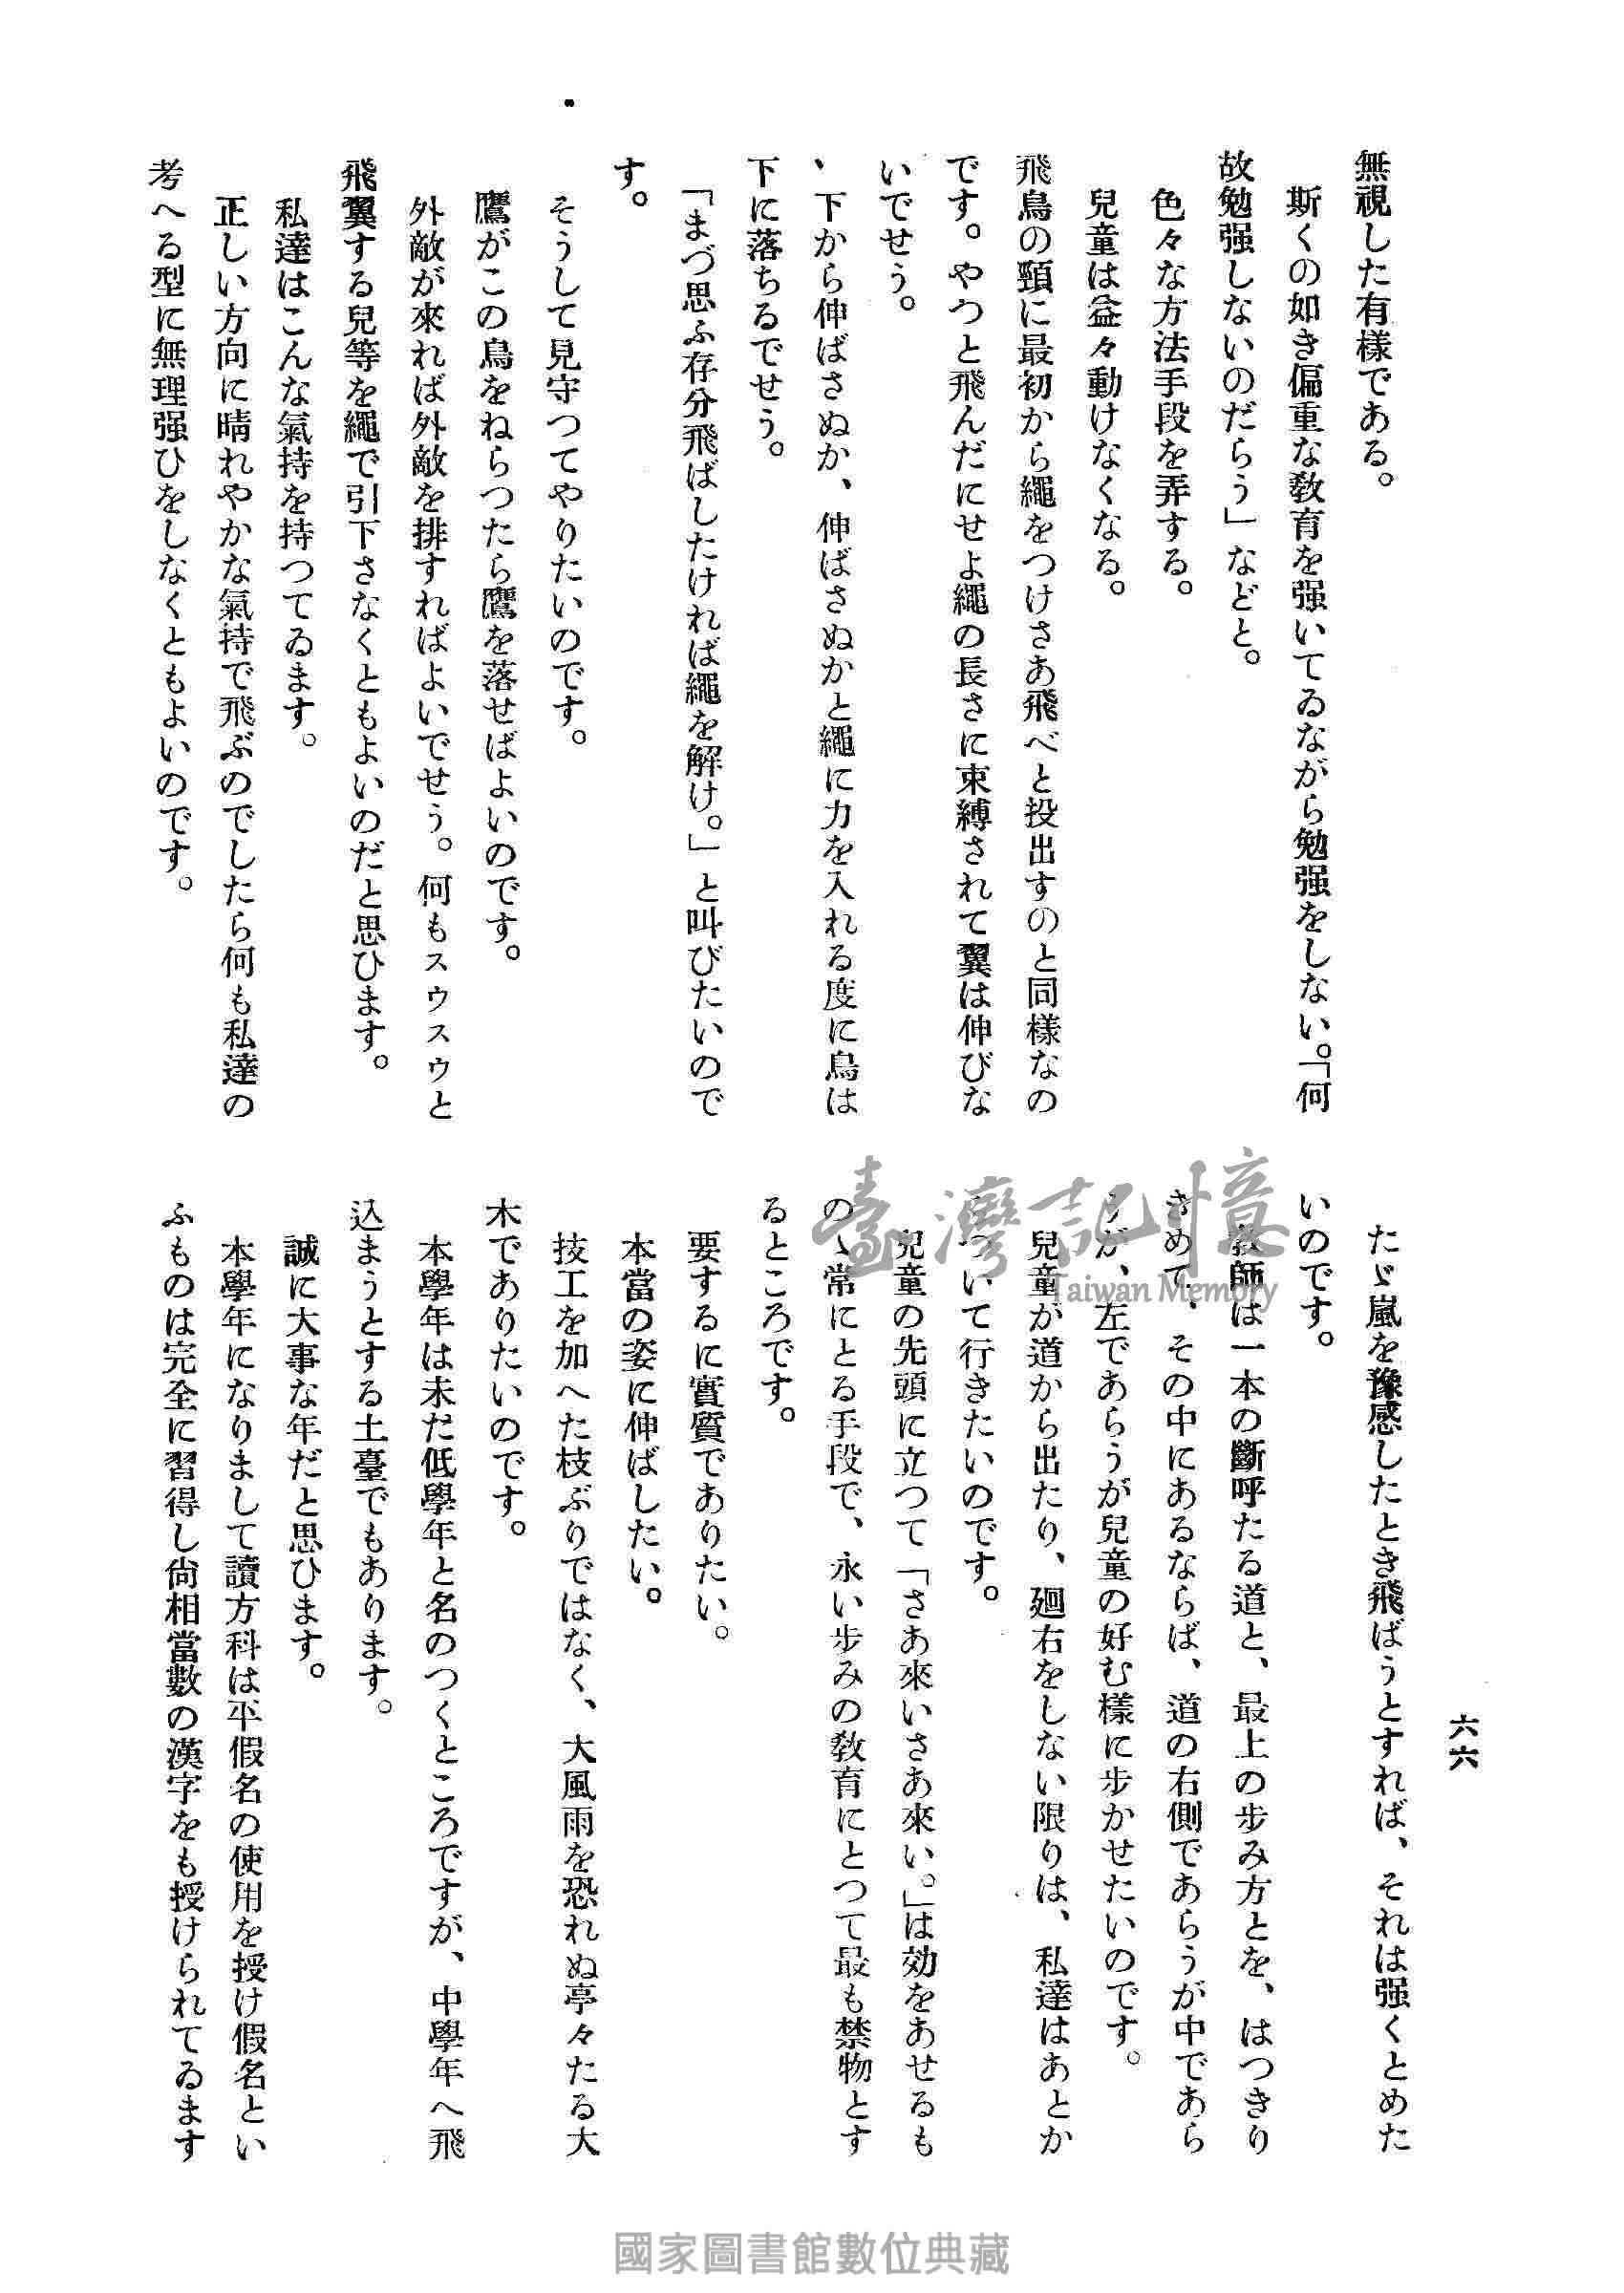 六六
無視した有樣である。
斯くの如き偏重な敎育を强いてゐながら勉强をしない。「何
故勉强しないのだらう」などと。
色々な方法手段を弄する。
兒童は益々動けなくなる。
飛鳥の頸に最初から繩をつけさあ飛べと投出すのと同樣なの
です。やつと飛んだにせよ繩の長さに束縛されて翼は伸びな
いでせう。
、下から伸ばさぬか、伸ばさぬかと繩に力を入れる度に鳥は
下に落ちるでせう。
「まづ思ふ存分飛ばしたければ繩を解け。」と叫びたいので
す。
そうして見守つてやりたいのです。
鷹がこの鳥をねらつたら鷹を落せばよいのです。
外敵が來れば外敵を排すればよいでせう。何もスウスウと
飛翼する兒等を繩で引下さなくともよいのだと思ひます。
私達はこんな氣持を持つてゐます。
正しい方向に晴れやかな氣持で飛ぶのでしたら何も私達の
考へる型に無理强ひをしなくともよいのです。
たゞ嵐を豫感したとき飛ばうとすれば、それは强くとめた
いのです。
敎師は一本の斷呼たる道と、最上の步み方とを、はつきり
きめて、その中にあるならば、道の右側であらうが中であら
うが、左であらうが兒童の好む樣に步かせたいのです。
兒童が道から出たり、廻右をしない限りは、私達はあとか
らついて行きたいのです。
兒童の先頭に立つて「さあ來いさあ來い。」は効をあせるも
のゝ常にとる手段で、永い步みの敎育にとつて最も禁物とす
るところです。
要するに實質でありたい。
本當の姿に伸ばしたい。
技工を加へた枝ぶりではなく、大風雨を恐れぬ亭々たる大
木でありたいのです。
本學年は未だ低學年と名のつくところですが、中學年へ飛
込まうとする土臺でもあります。
誠に大事な年だと思ひます。
本學年になりまして讀方科は平假名の使用を授け假名とい
ふものは完全に習得し尙相當數の漢字をも授けられてゐます
臺灣記憶
Taiwan Memory
國家圖書館數位典藏